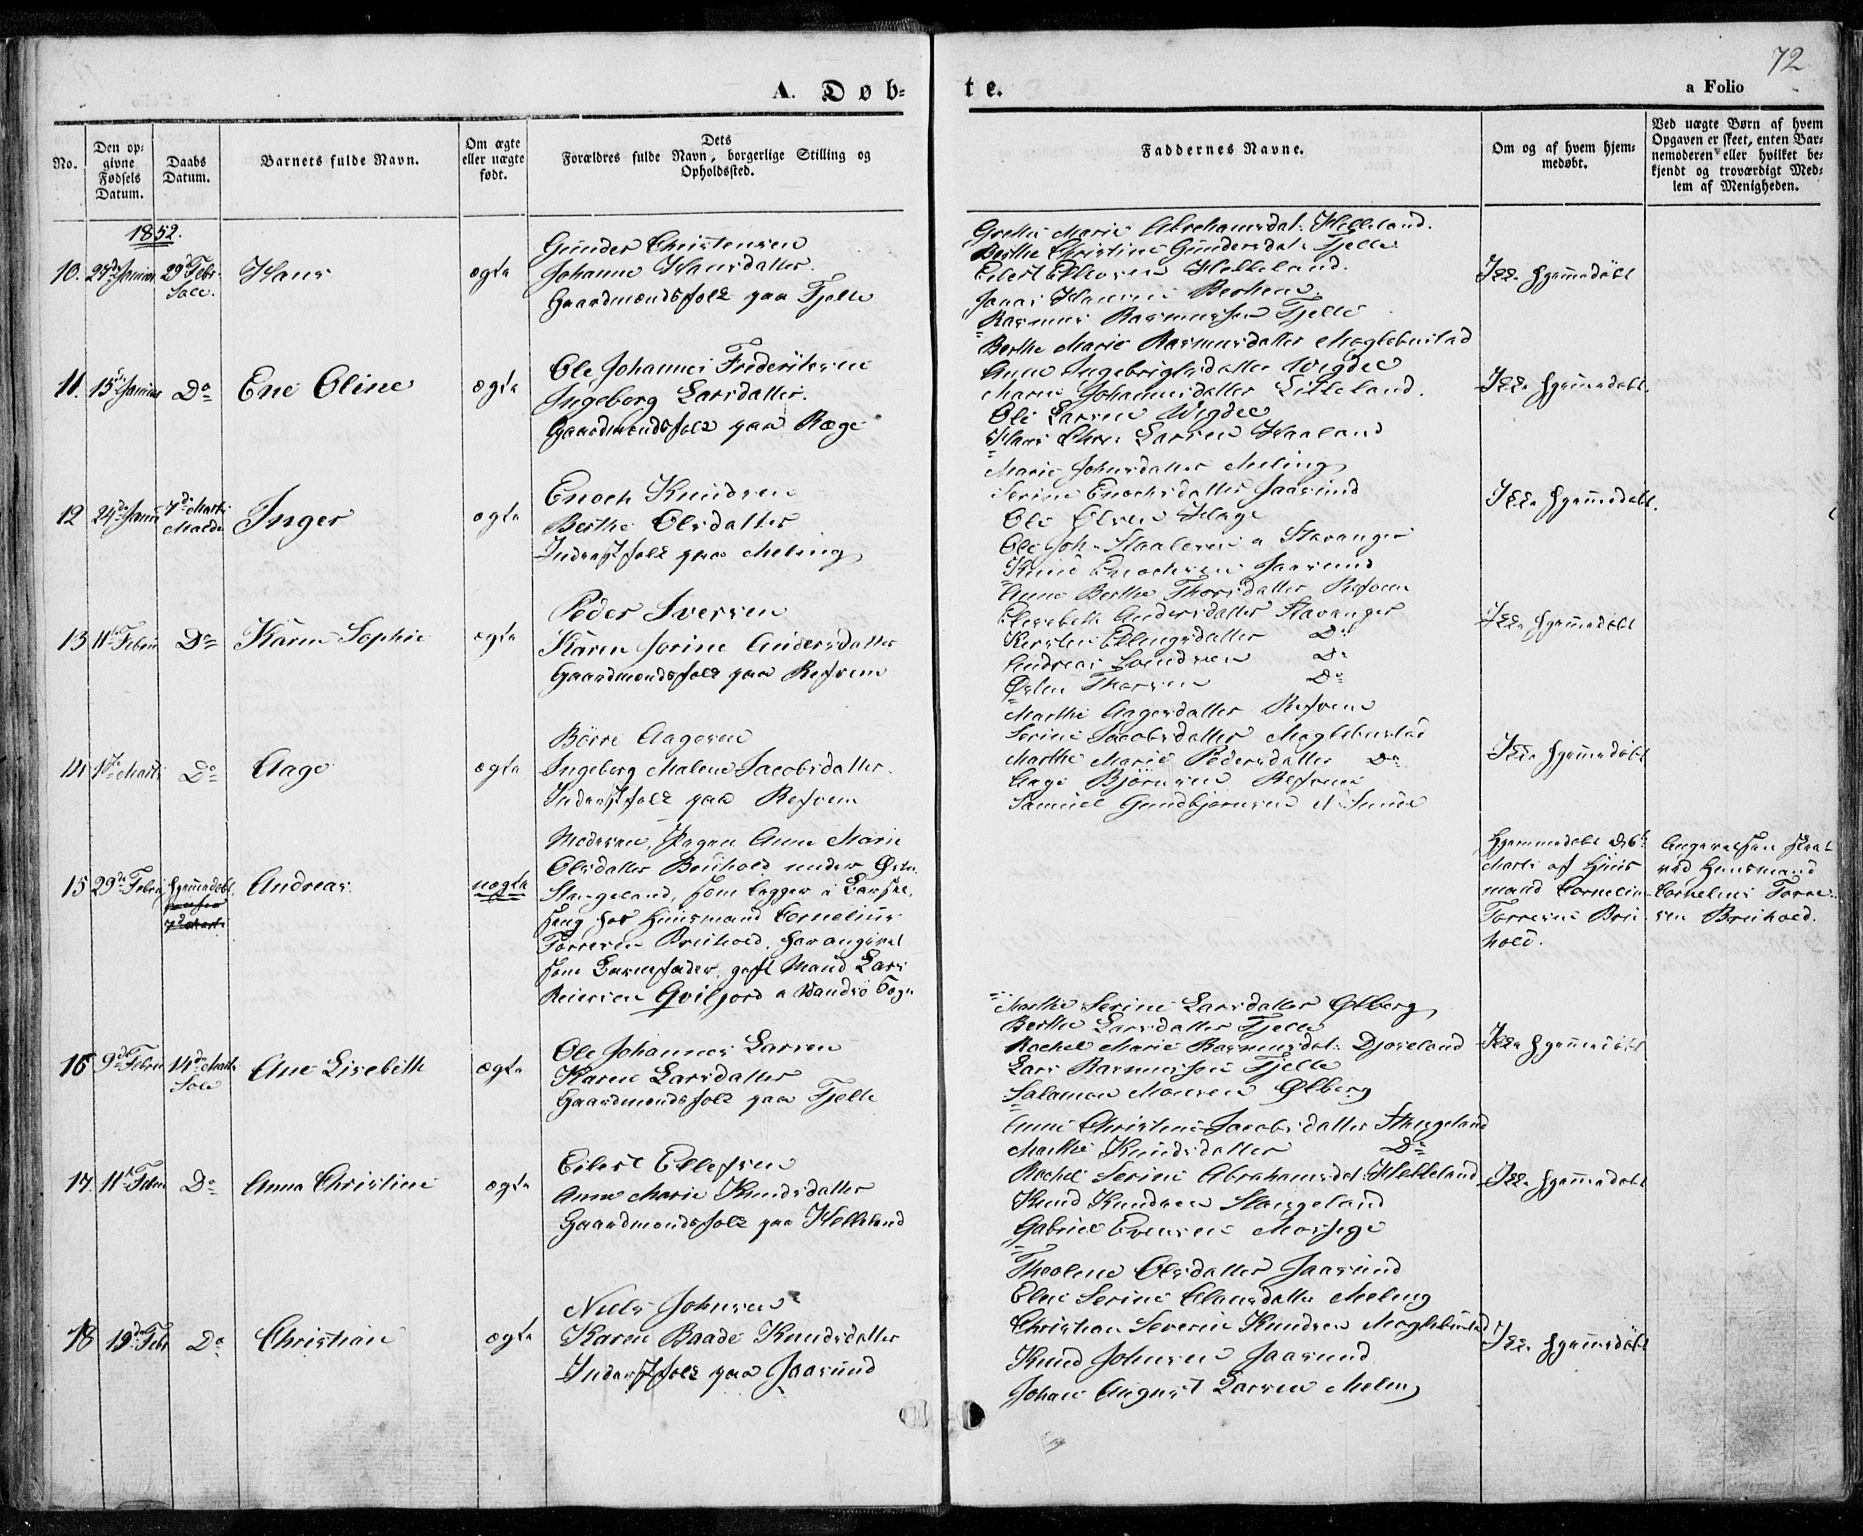 72
A. Døb-
te.
a Folio
No.
Den op-
givne
Fødsels
Datum.
Daabs
Datum.
Barnets fulde Navn.
Om ægte
eller uægte
født.
Dets
Forældres fulde Navn, borgerlige Stilling og
Opholdssted.
Faddernes Navne.
Om og af hvem hjem-
medøbt.
Ved uægte Børn af hvem
Opgaven er skeet, enten Bar-
nemoderen eller hvilket be-
kjendt og troværdigt Med-
lem af Menigheden.
1852.
10.
29de Febr
Sole.
Hans
ægte
Gunder Christensen
Johanne Hansdatter.
Gaardmandsfolk paa Tjelte
Grethe Marie Abrahamsdat. Helleland.
Berthe Christine Gundersdat. Tjelte
Eilert Helleland.
Jonas Hansen
Rasmus Rasmussen Tjelte
Ikke hjemmedøbt
11.
15de Januar
Do
Ene Oline
ægte
Ole Johannes Frederiksen
Ingeborg Larsdatter.
Gaardmandsfolk paa Ræge
Berthe Marie Rasmusdatter Meglebustad
Anne Ingebrigtsdatter Wigdel
Maren Johannesdatter Litleland.
Ole Larsen Wigdel
Hans Chr. Larsen Haaland
Ikke hjemmedøbt.
12
24de Janu
7de Marti
Malde
Inger
ægte
Enoch Knudsen
Berthe Olsdatter
Inderstfolk paa Meling
Marie Johnsdatter Meling
Serine Enochsdatter Jaasund
Ole Olsen Hage
Ole Joh. Staalesen a Stavanger
Knud Enochsen Jaasund
Ikke hjemmedøbt.
13
11te Febru
Do
Karen Sophie
ægte
Peder Iversen
Karen Jorine Andersdatter
Gaardmandsfolk paa Refsem
Anne Berthe Thorsdatter Refsem
Elisabeth Andersdatter Stavanger
Kirsten Ellingsdatter Do
Andreas Svendsen Do
Østen Thorsen Do
Ikke hjemmedøbt
14
1ste Marti
Do
Aage
ægte
Börre Aagesen
Ingeborg Malene Jacobsdatter.
Inderstfolk paa Refsem
Marthe Aagesdatter Refsem
Serine Jacobsdatter Meglebustad
Marthe Marie Pedersdatter Do
Aage Björnsen Refsem
Samuel Gundbjornsen
Ikke hjemmedøbt
15
29de Febru
hjemmedøbt
7de Marti
Andreas.
uægte
Moderen, Pigen Anne Marie
Olsdatter Bruhold under Østre
Stangeland, som ligger i Barsel
seng hos Huusmand Cornelius
Torresen Bruhold, har angivet
som Barnefader, gift Mand Lars
Reiersen Qviljord a Sogn
Hjemmedøbt D. 6te
Marti af Huus
mand Cornelius
Torresen Bru
hold.
Angivelsen skeet
ved Huusmand
Cornelius Torre-
sen Bruhold.
16
9de Febru
14de Marti
Sole
Ane Lisebeth
ægte
Ole Johannes Larsen
Karen Larsdatter
Gaardmandsfolk paa Tjelte
Marthe Serine Larsdatter Ølberg
Berthe Larsdatter Tjelte
Rachel Marie Rasmusdat. Djoseland
Lars Rasmussen Tjelte
Salamon Monsen Ølberg
Ikke hjemmedøbt
17
11te Febru
Do
Anna Christine
ægte
Eilert Ellefsen
Anne Marie Knudsdatter
Gaardmandsfolk paa Helleland
Anne Christine Jacobsdatter Stangeland
Marthe Knudsdatter Do
Rachel Serine Abrahamsdat. Helleland
Knud Knudsen Stangeland
Gabriel Evensen
Ikke hjemmedøbt
18
19de Febr
Do
Christian
ægte
Niels Johnsen
Karen Baade Knudsdatter
Inderstfolk paa Jaasund
Theoline Olsdatter Jaasund
Eline Serine Clausdatter Meling
Christian Severin Knudsen Meglebustad
Knud Johnsen Jaasund
Johan August Larsen Meling
Ikke hjemmedøbt